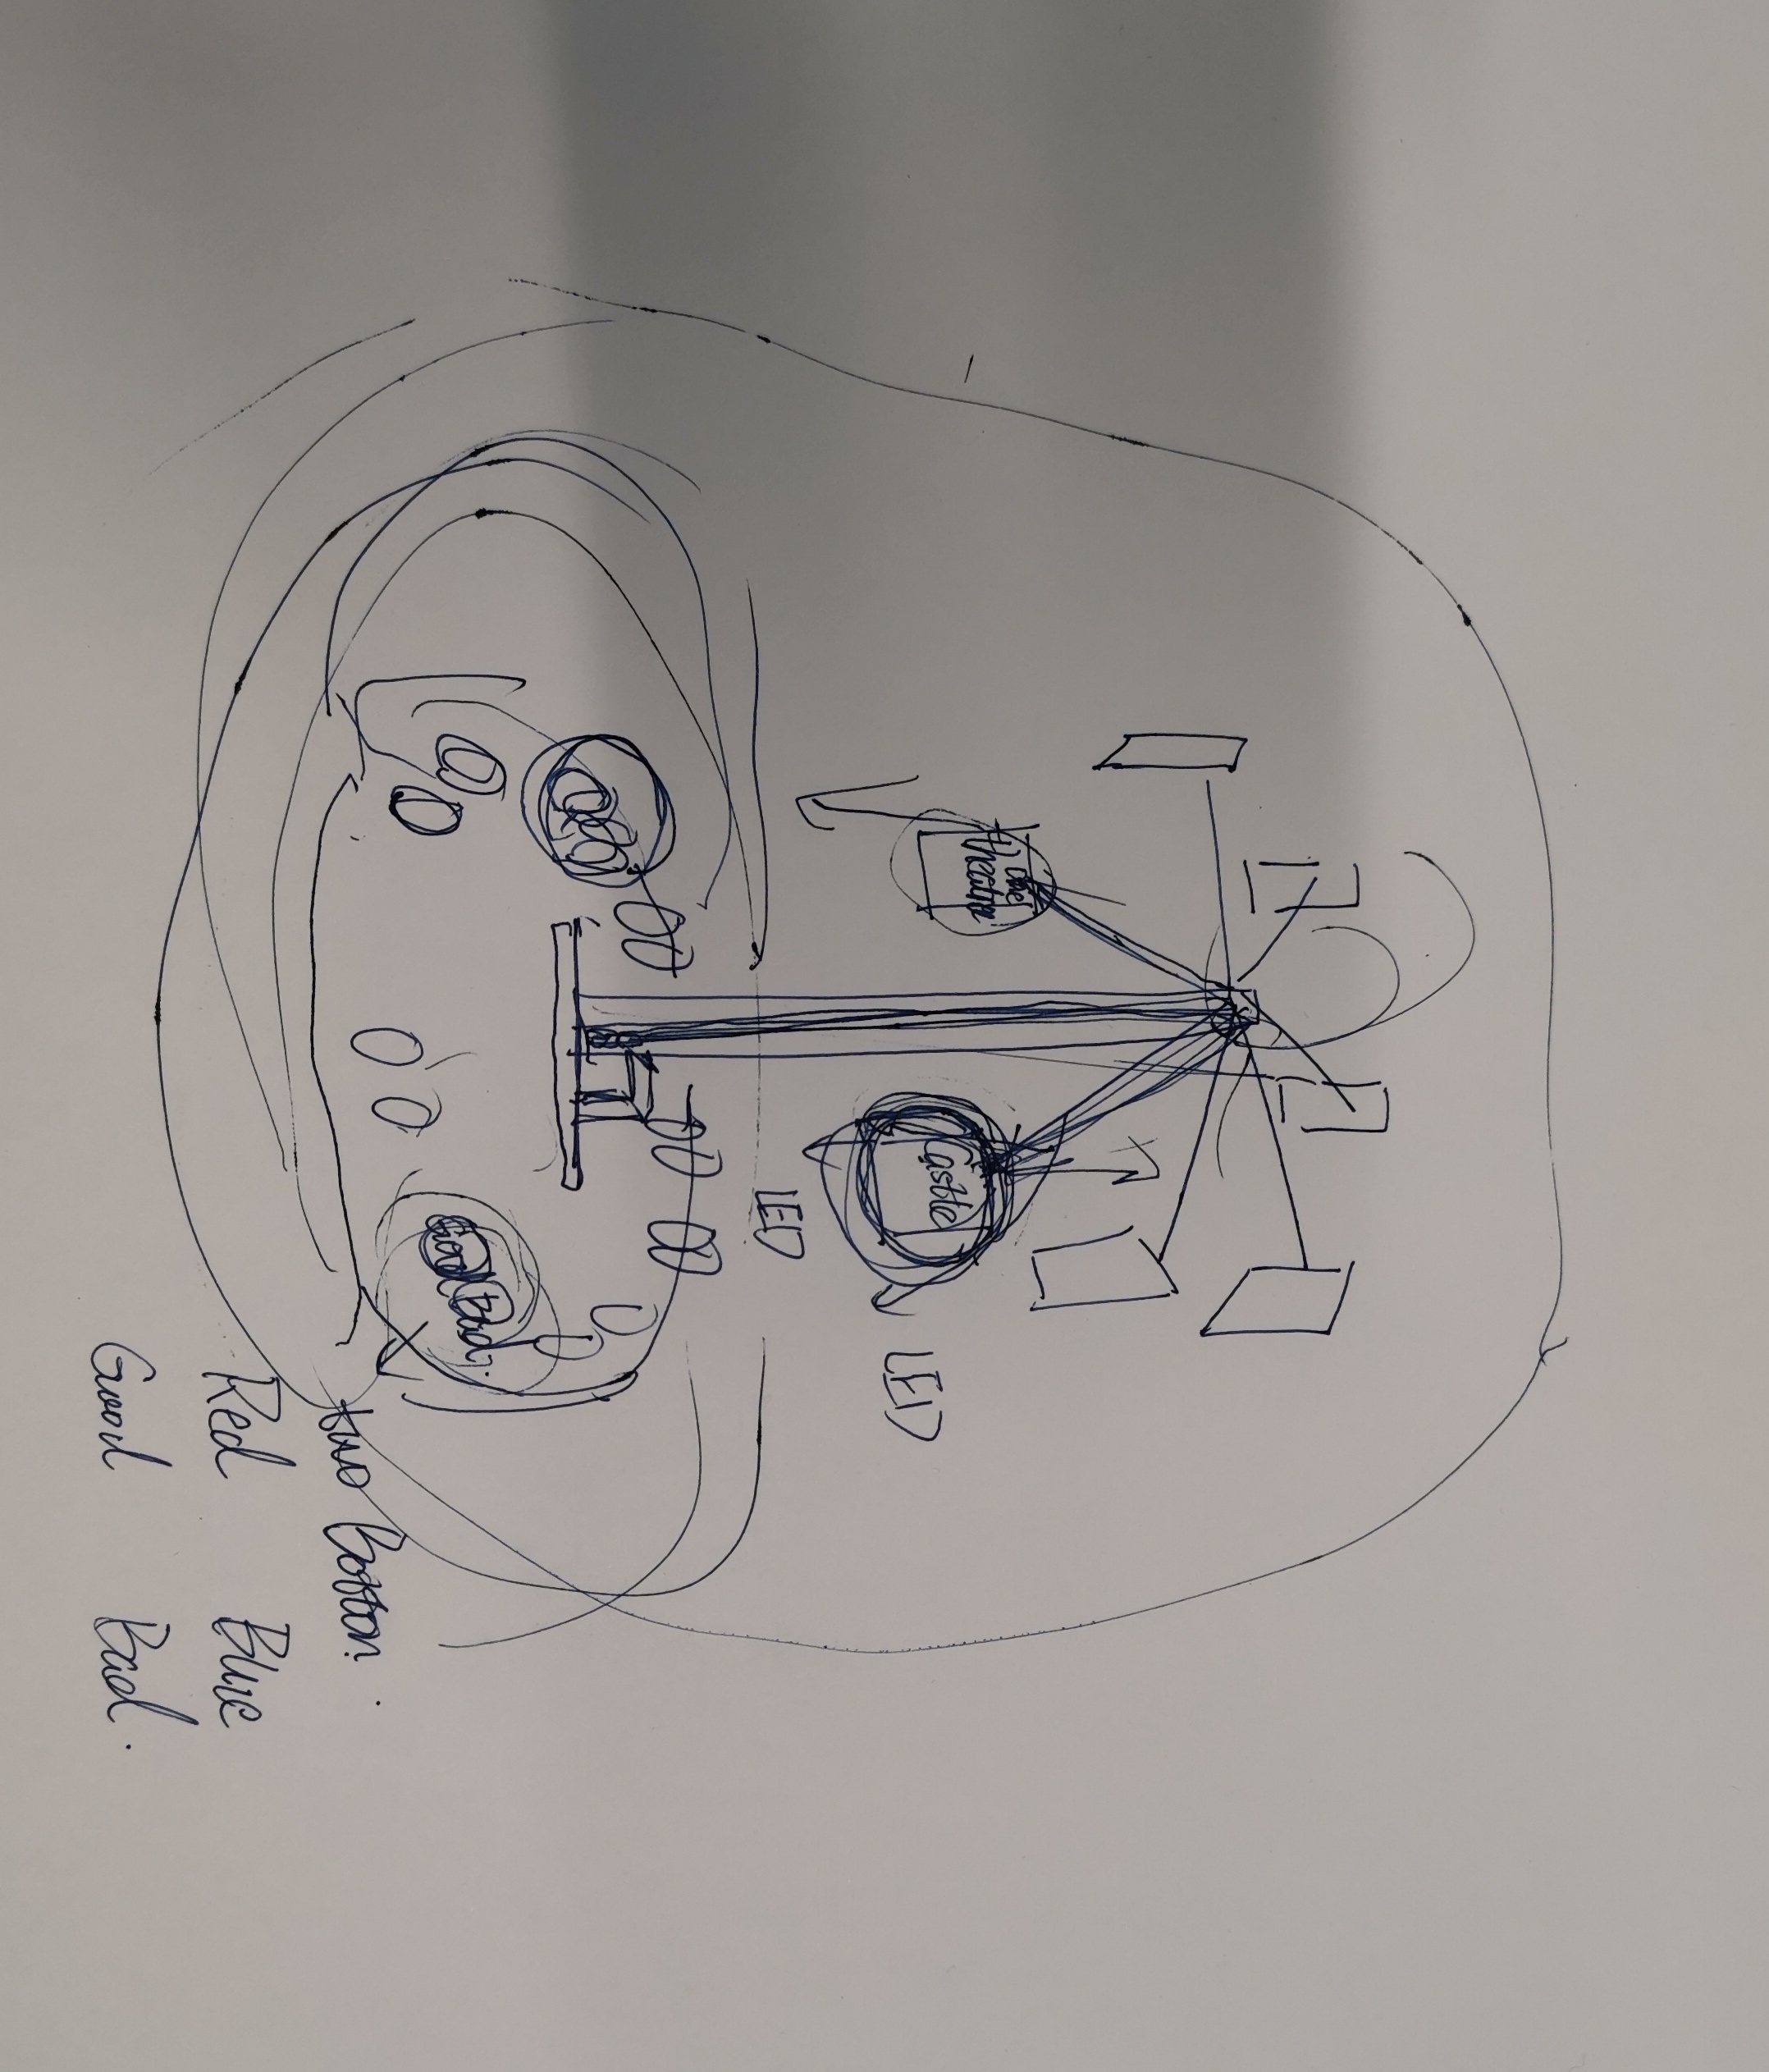 the
theatre
Castle
LED
LED
Good Bad
two botton.
Red Blue
Good Bad.